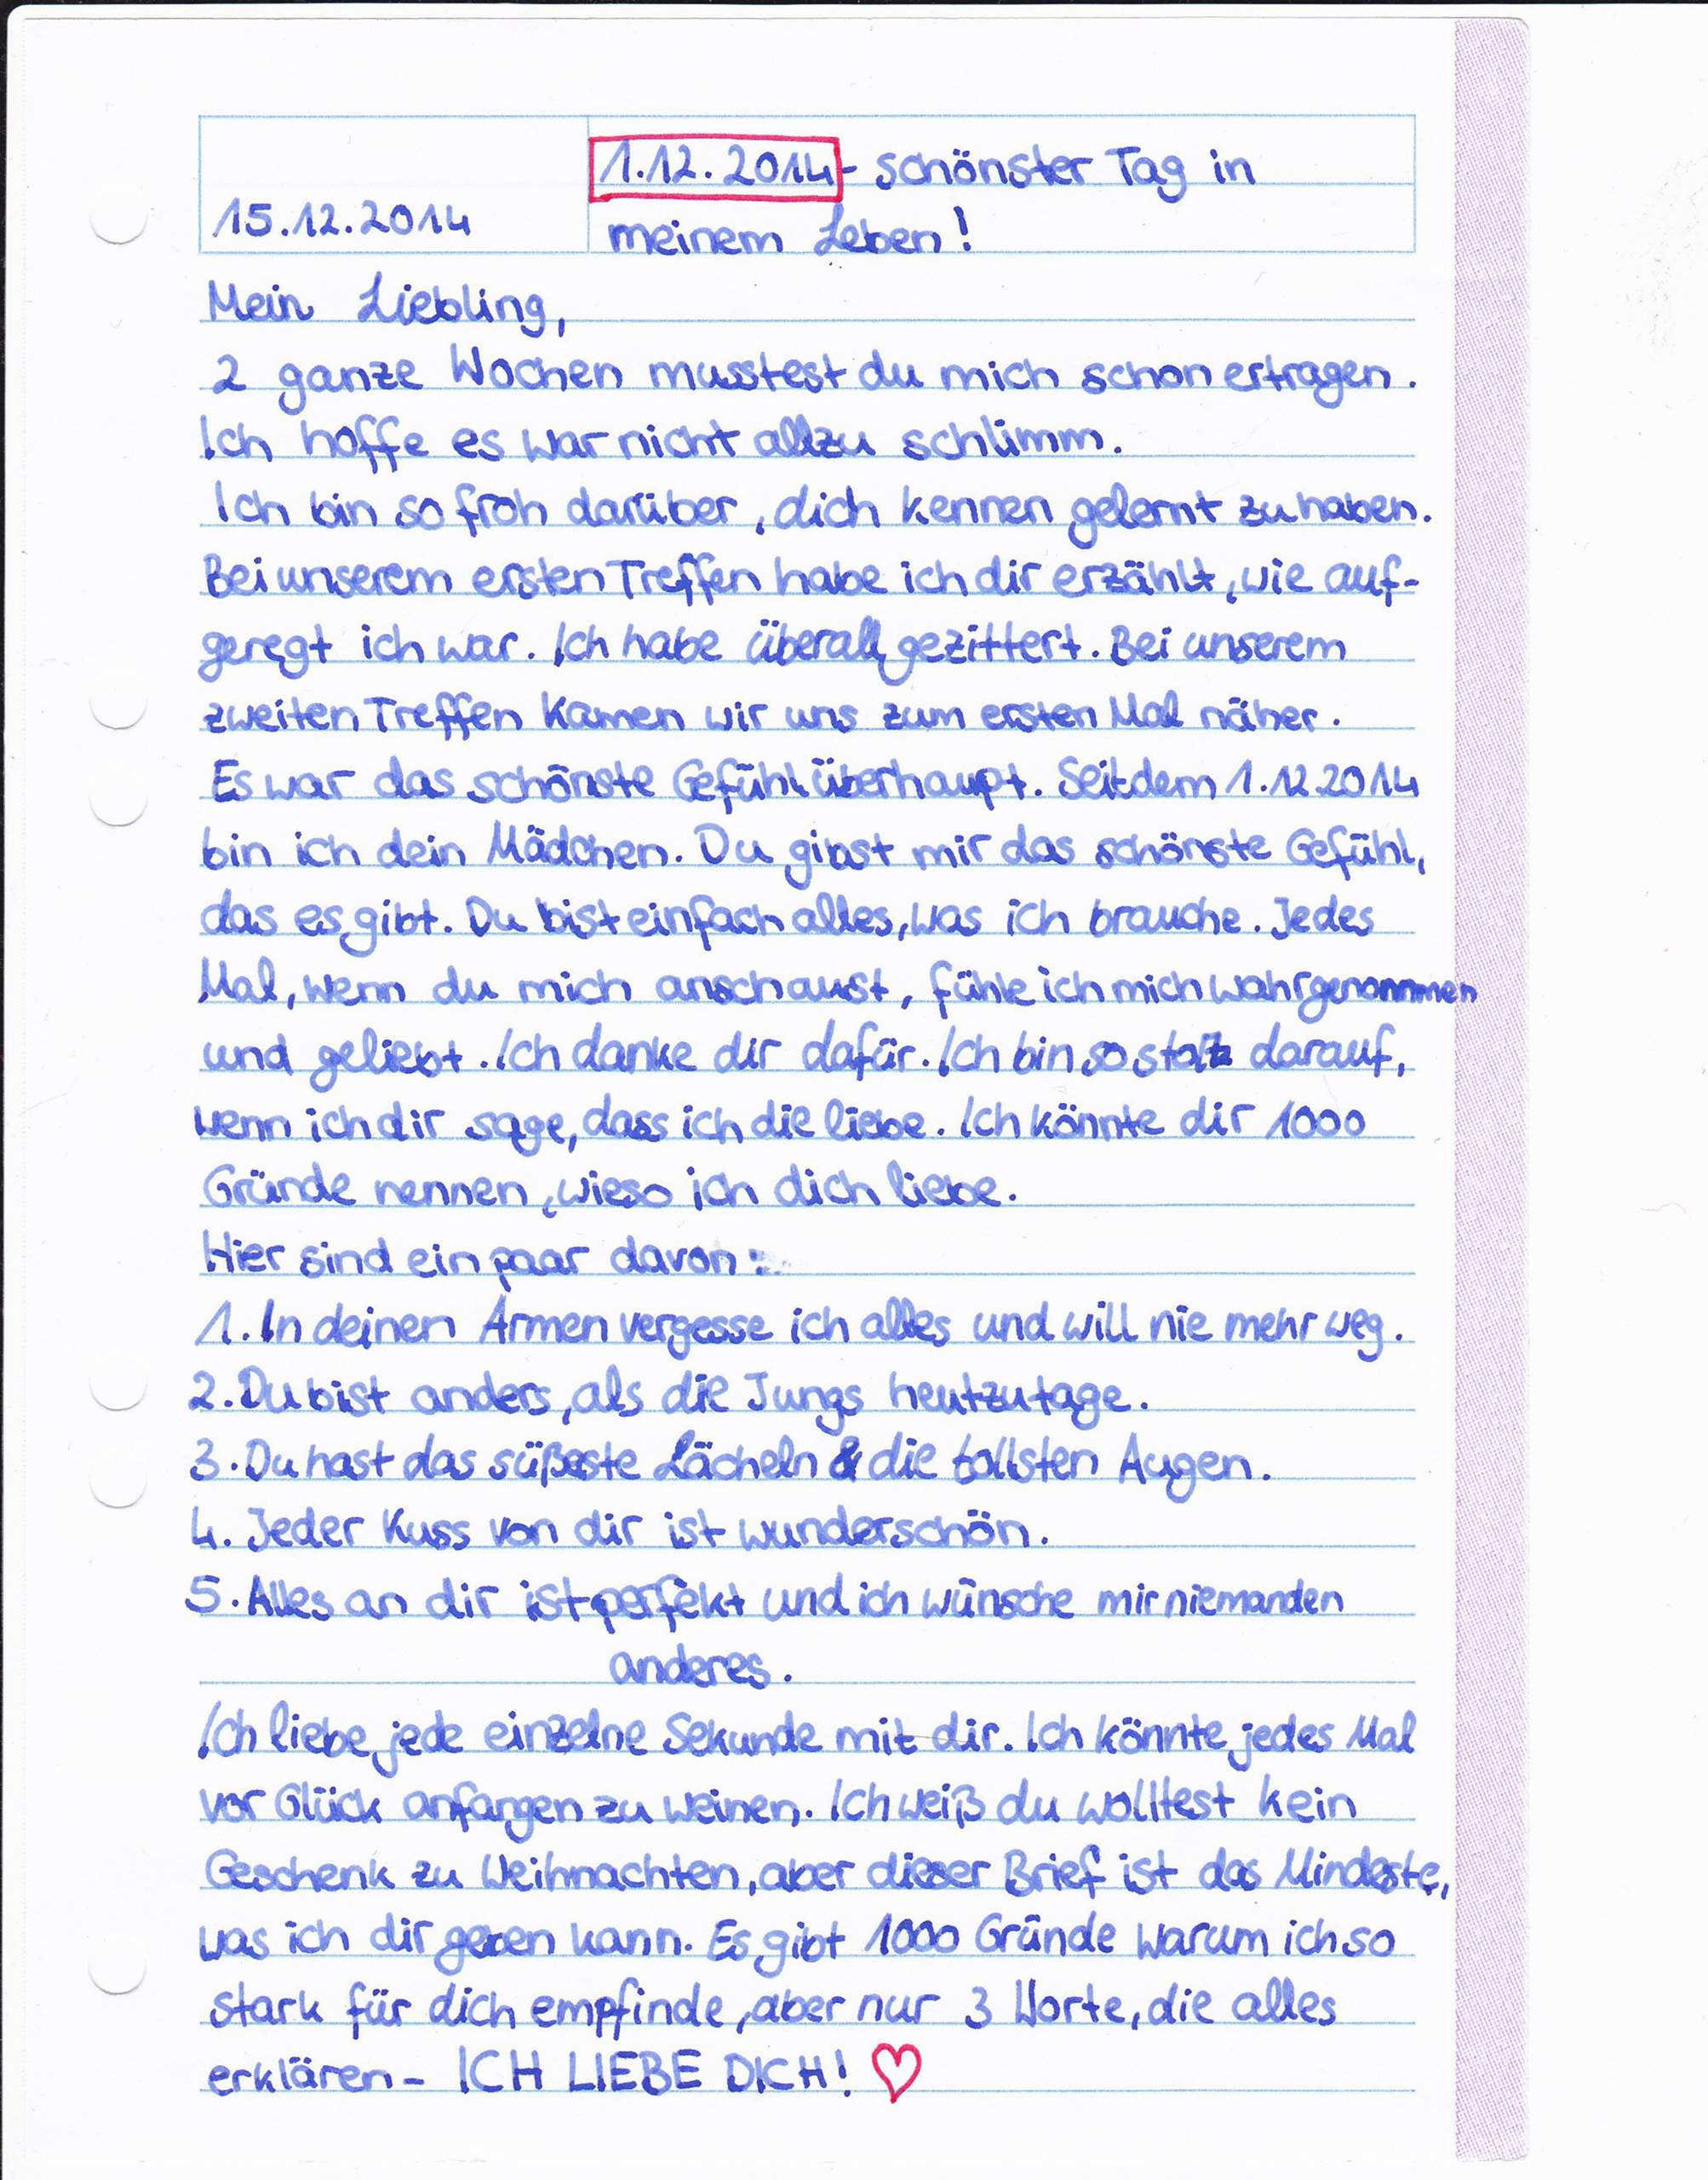 1.12.2014 - schönster Tag in
15.12.2014
meinem Leben!
Mein Liebling,
2 ganze Wochen musstest du mich schon ertragen.
Ich hoffe es war nicht allzu schlimm.
Ich bin so froh darüber, dich kennen gelernt zu haben.
Bei unserem ersten Treffen habe ich dir erzählt, wie auf-
geregt ich war. Ich habe überall gezittert. Bei unserem
zweiten Treffen kamen wir uns zum ersten Mal näher.
Es war das schönste Gefühl überhaupt. Seit dem 1.12.2014
bin ich dein Mädchen. Du gibst mir das schönste Gefühl,
das es gibt. Du bist einfach alles, was ich brauche. Jedes
Mal, wenn du mich anschaust, fühle ich mich wahrgenommen
und geliebt. Ich danke dir dafür. Ich bin so stolz darauf,
wenn ich dir sage, dass ich die liebe. Ich könnte dir 1000
Gründe nennen, wieso ich dich liebe.
Hier sind ein paar davon:
1. In deinen Armen vergesse ich alles und will nie mehr weg.
2. Du bist anders, als die Jungs heutzutage.
3. Du hast das süßeste Lächeln & die tollsten Augen.
4. Jeder Kuss von dir ist wunderschön.
5. Alles an dir ist perfekt und ich wünsche mir niemanden
anderes.
Ich liebe jede einzelne Sekunde mit dir. Ich könnte jedes Mal
vor Glück anfangen zu weinen. Ich weiß du wolltest kein
Geschenk zu Weihnachten, aber dieser Brief ist das Mindeste,
was ich dir geben kann. Es gibt 1000 Gründe warum ich so
stark für dich empfinde, aber nur 3 Worte, die alles
erklären - ICH LIEBE DICH! ♡